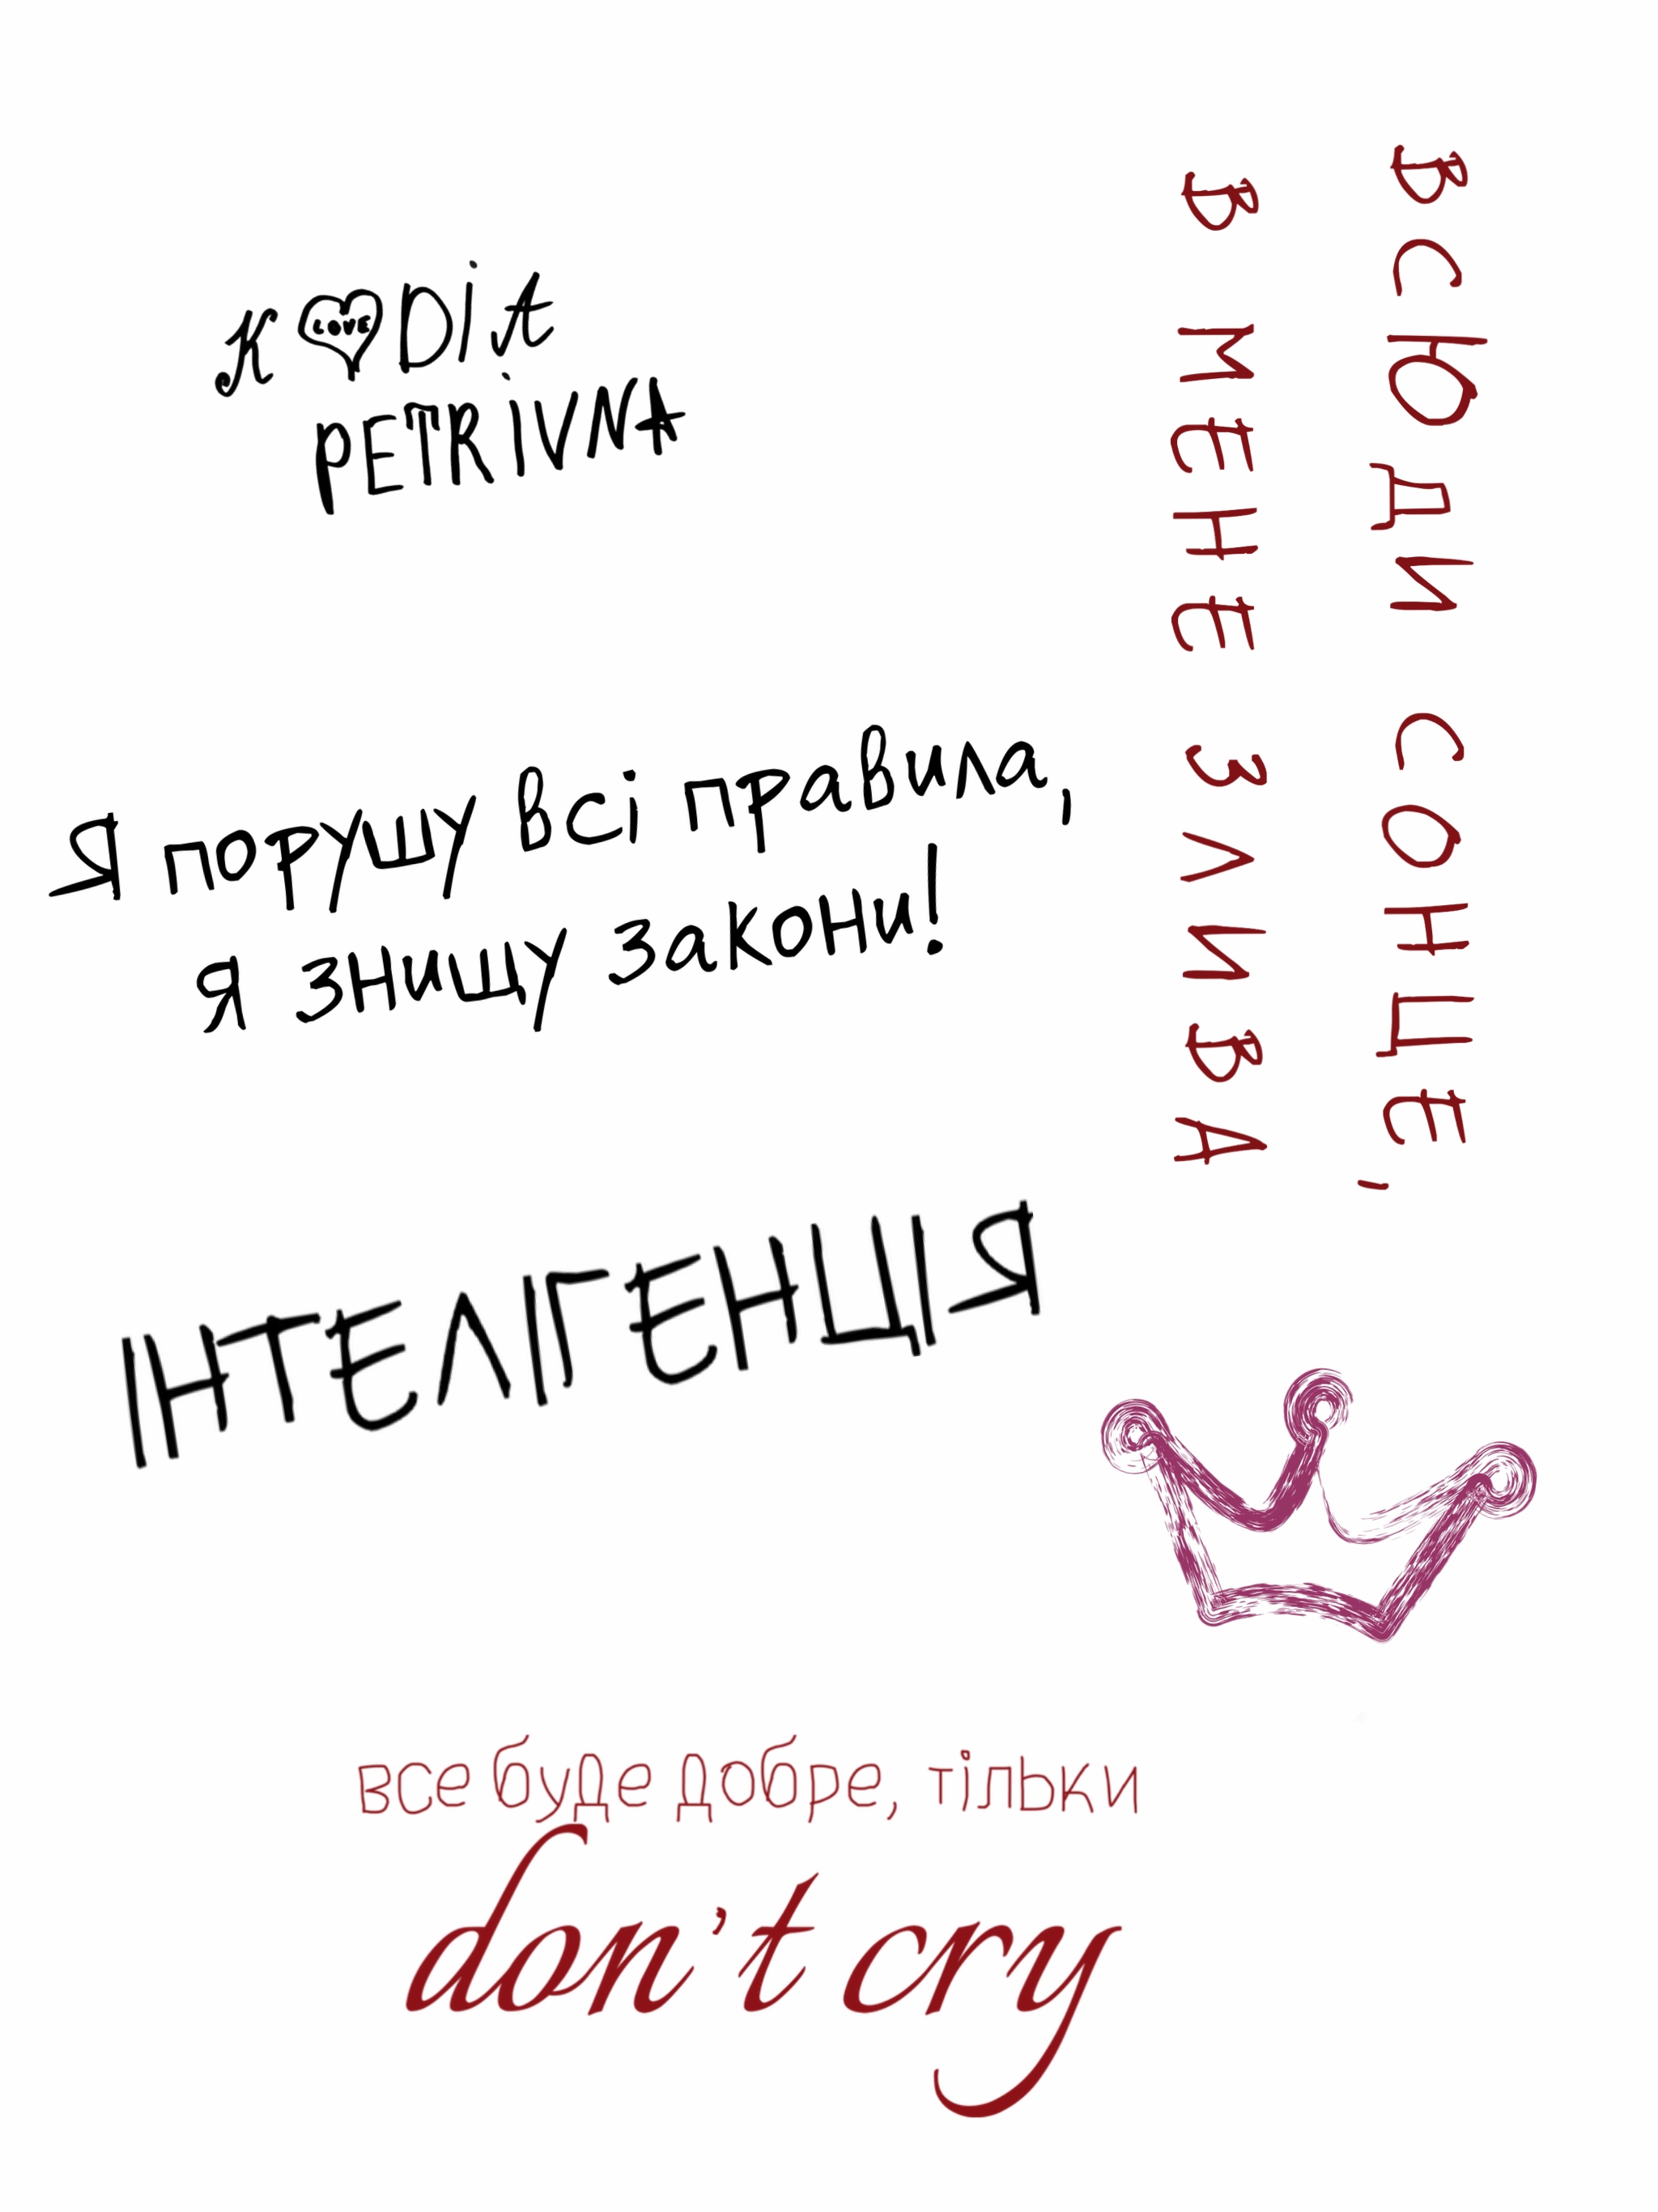 K LOVE Dit
PETRIVNA
ВСЮДИ СОНЦЕ,
В МЕНЕ ЗЛИВА
Я порушу всі правила,
я знищу закони!
ІНТЕЛІГЕНЦІЯ
все буде добре, тільки
don't cry